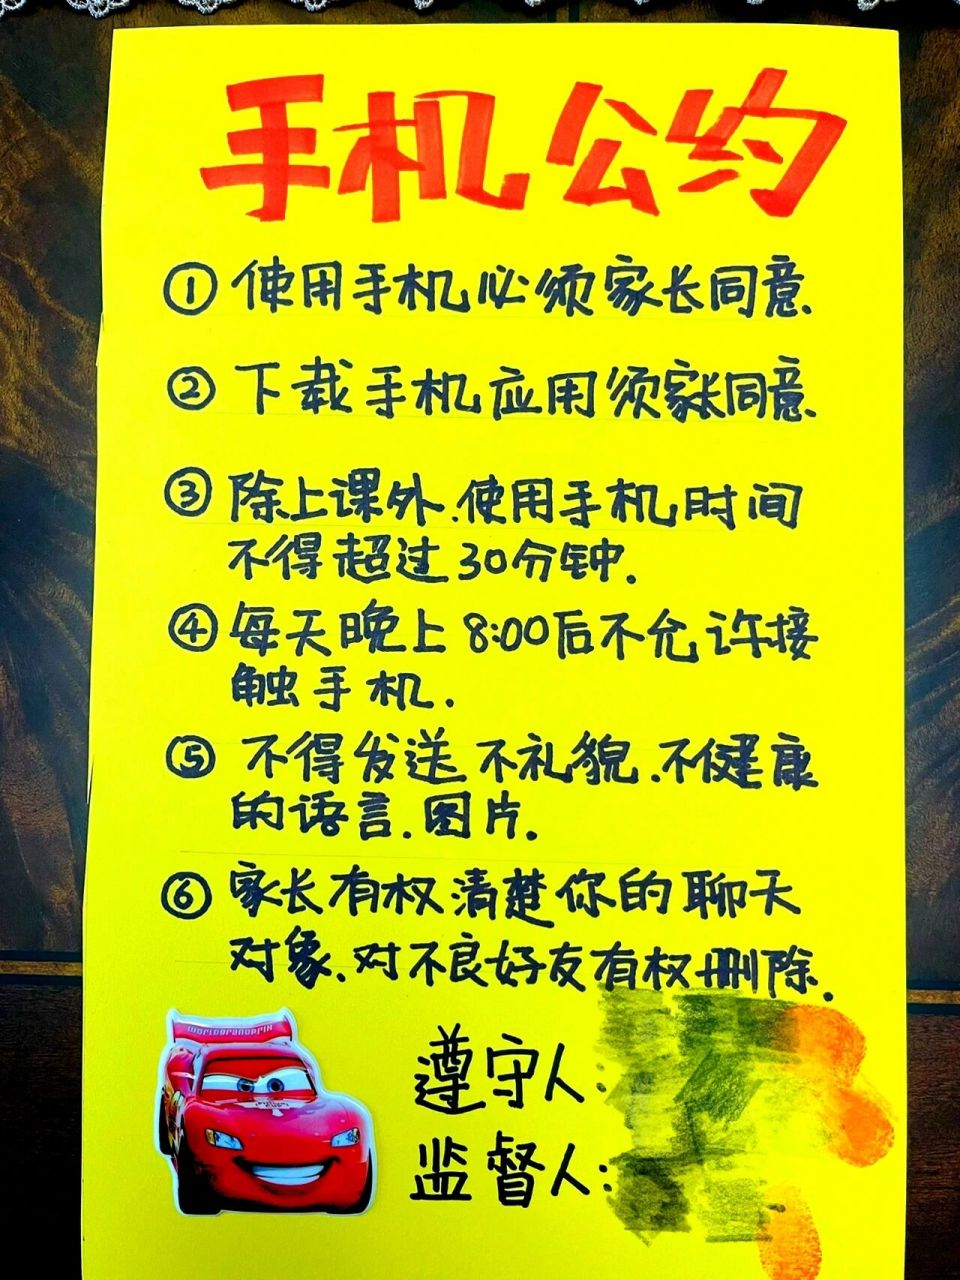 手机公约
①使用手机必须家长同意.
②下载手机应用须家长同意.
③除上课外.使用手机时间
不得超过30分钟.
④每天晚上8:00后不允许接
触手机.
⑤不得发送不礼貌.不健康
的语言.图片.
⑥家长有权清楚你的聊天
对象.对不良好友有权删除.
WORLDGRANDPRIX
遵守人:
监督人: